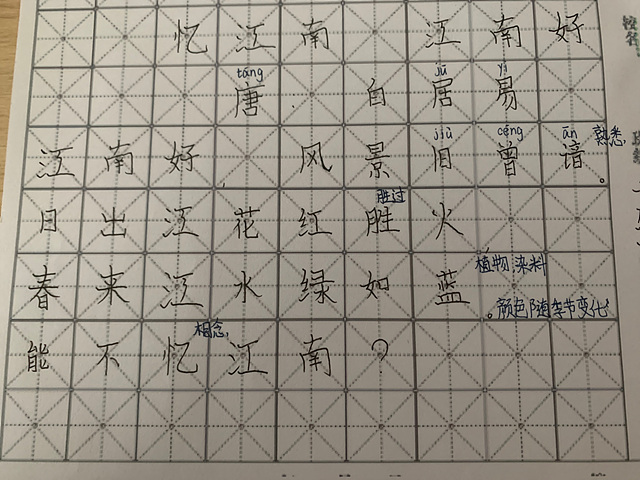 忆江南 江南好
táng jū yì
唐·白居易
jiù céng ān
江南好，风景旧曾谙。熟悉
胜过
日出江花红胜火
春来江水绿如蓝。植物染料
颜色随季节变化
相念
能不忆江南？